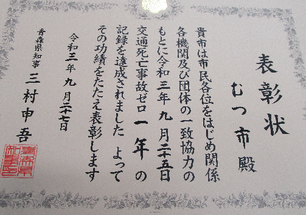 表彰状
むつ市 殿
貴市は市民各位をはじめ関係
各機関及び団体の一致協力の
もとに令和三年九月二十五日
交通死亡事故ゼロ一年の
記録を達成されました よって
その功績をたたえ表彰します
令和三年九月二十七日
青森県知事 三村申吾